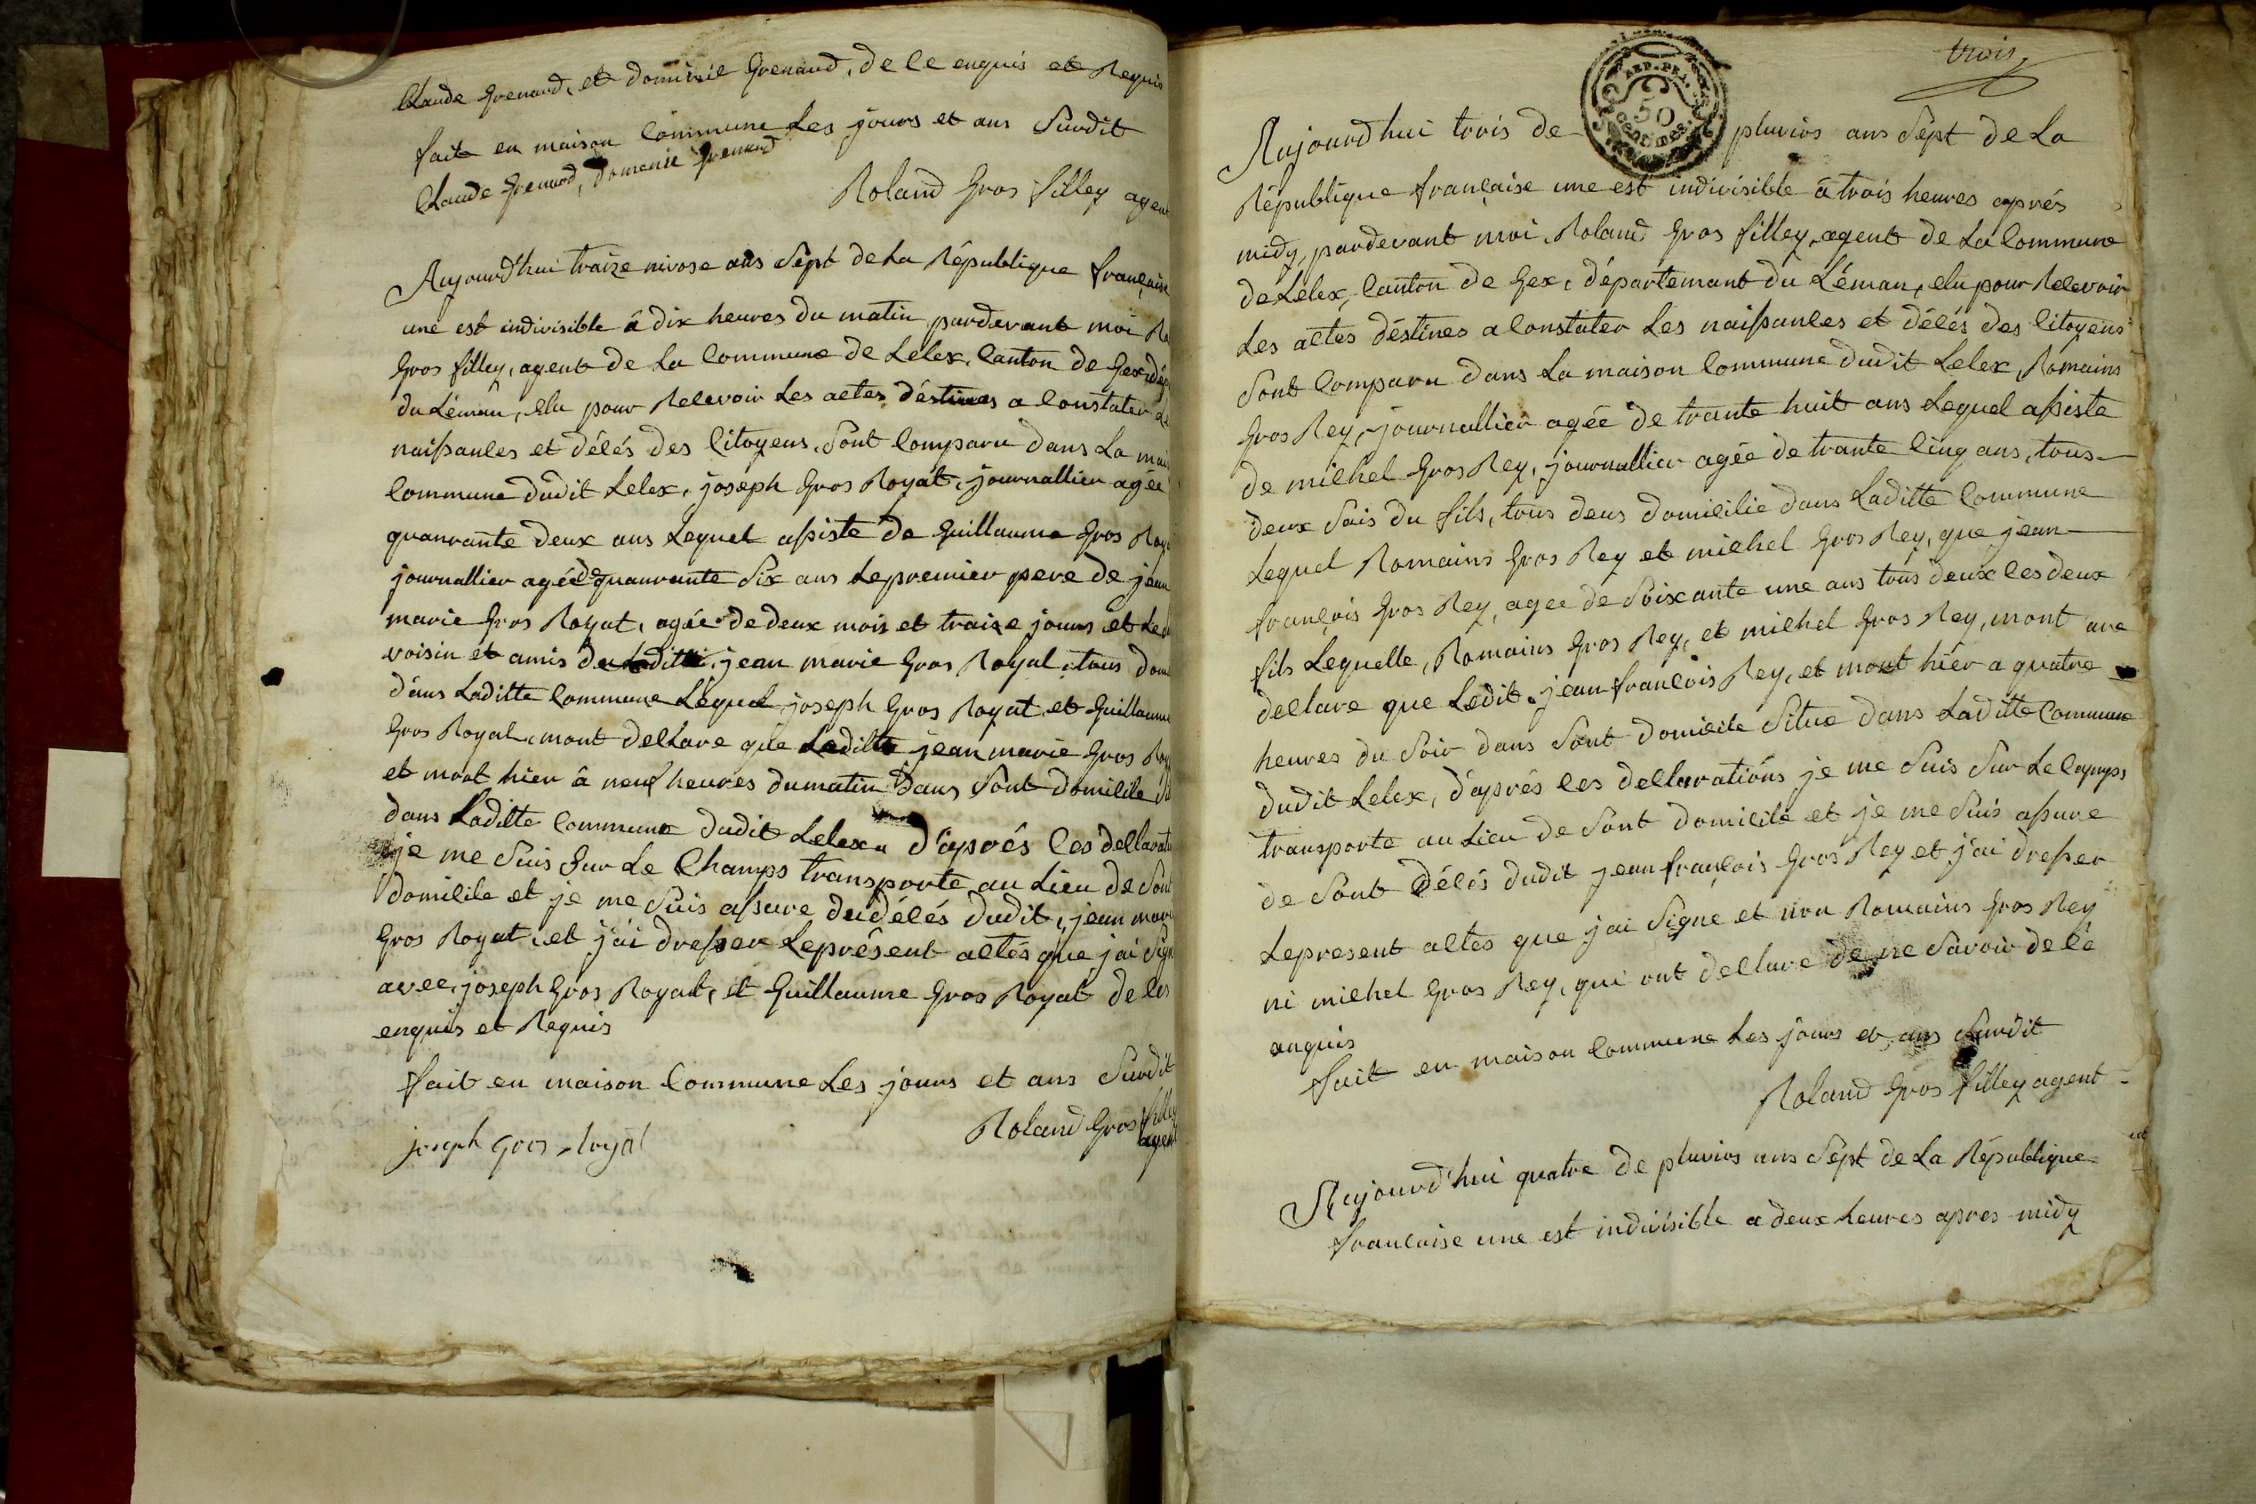 Claude Grenard, et domènie Grenard, de le enquis et Requis
fait en maison Commune Les jours et ans Surdit
Claude Grenard, Domenie Grenard
Roland Gros filley agent
Aujourd'hui traize nivose ans Sept de La République française
une est indivisible â dix heures du matin pardevant moi Ro
Gros filley, agent de La Commune de Lelex, Canton de Gex, dép
du Léman, elu pour Recevoir Les actes déstines a Constater Le
naissances et décés des Citoyens, Sont Comparu dans La mais
Commune dudit Lelex, joseph Gros Royat, journallier agée
quanrante deux ans Lequel assiste de Guillaume Gros Roya
journallier agée de quanrante Six ans Lepremier pere de jean
marie Gros Royat, agée de deux mois et traize jours et Le
voisin et amis de Laditte, jean marie Gros Royat, tous dom
dans Laditte Commune Lequel joseph Gros Royat et Guillaume
Gros Royat, mont declare que Laditte jean marie Gros Roy
et mort hier â neuf heures dumatin Dans Sont domicile
dans Laditte Commune dudit Lelex, d'aprés ces declarati
je me Suis Sur Le Champs transporte au Lieu de Sont
domicile et je me Suis assure du décés dudit, jean mari
Gros Royat, et j'ai dresser Leprésent actes que j'ai Sign
avec, joseph Gros Royat, et Guillaume Gros Royat de ces
enquis et Requis
fait en maison Commune Les jours et ans Surdit
Roland Gros filley
agent
joseph gros royat
trois
REP. FRA.
50
CENTIMES.
Aujourd'hui trois de pluvios ans Sept de La
République française une est indivisible â trois heures aprés
midy, pardevant moi Roland Gros filley, agent de La Commune
de Lélex, Canton de Gex, départemant du Léman, elu pour Recevoir
Les actes déstines a Constater Les naissances et décés des Citoyens
Sont Comparu dans La maison Commune dudit Lelex, Romains
Gros Rey, journallier agée de trante huit ans Lequel assiste
de michel Gros Rey, journallier agée de trante Cinq ans, tous
deux Sais du fils, tous deus domicilie dans Laditte Commune
Lequel Romains Gros Rey et michel Gros Rey, que jean
françois Gros Rey, agee de Soixante une ans tous deux les deux
fils Lequelle, Romains Gros Rey, et michel Gros Rey, mont
declare que Ledit jean françois Rey, et mort hiér a quatre
heures du Soir dans Sont domicile Situe dans Laditte Commune
dudit Lelex, d'aprés ces declaratións je me Suis Sur Le
transporte au Lieu de Sont domicile et je me Suis assure
de Sont décés dudit jean françois Gros Rey et j'ai dresser
Lepresent actes que j'ai Signe et non Romains Gros Rey
ni michel Gros Rey, qui ont declare de ne Savoir de le
anquis
fait en maison Commune Les jours et ans Surdit
Roland Gros filley agent
Aujourd'hui quatre de pluvios ans Sept de La République
francaise une est indivisible a deux heures apres midy